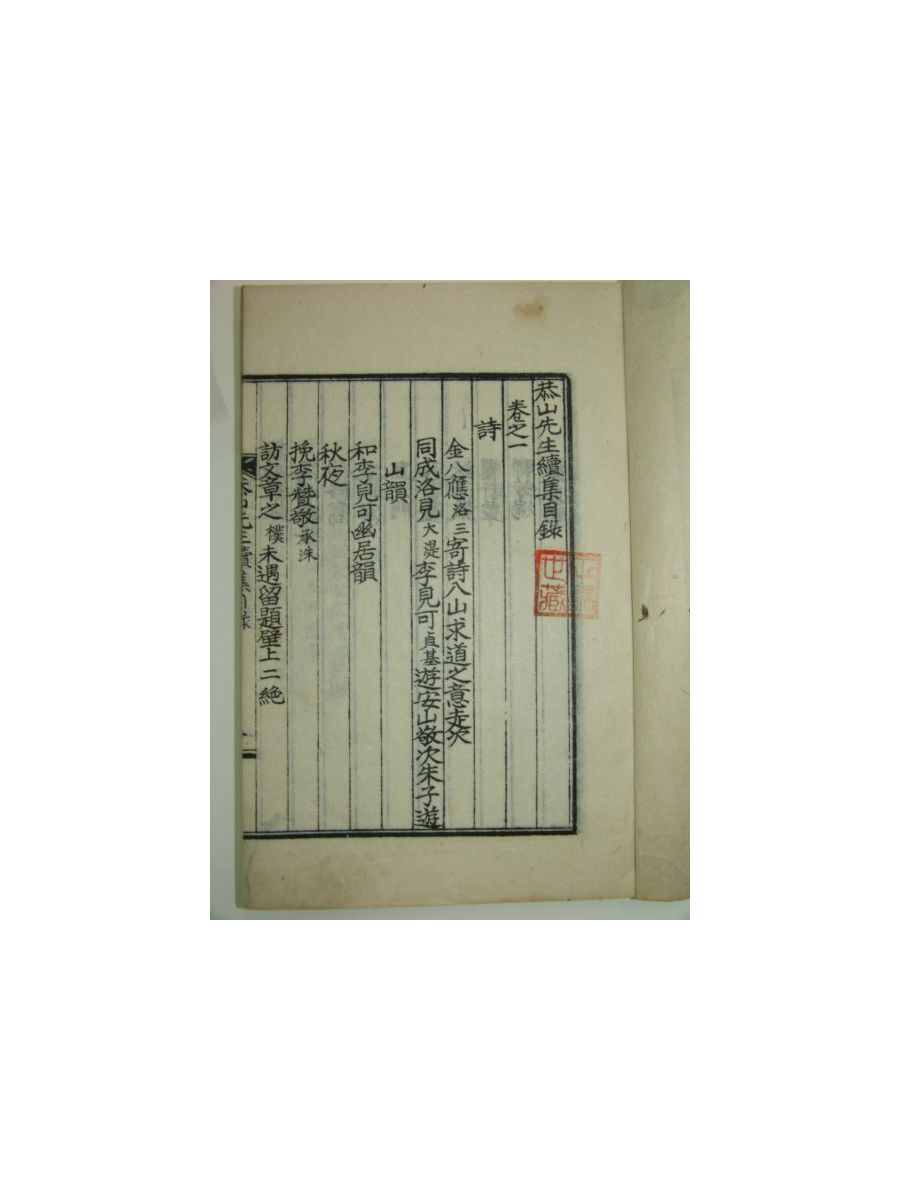 恭山先生續集目錄
卷之一
詩
金八應洛三寄詩八山求道之意走次
同成洛見大湜李見可貞基遊安山敬次朱子遊
山韻
和李見可幽居韻
秋夜
挽李贊敬承洙
訪文章之樸未遇留題壁上二絶
恭山先生續集目錄